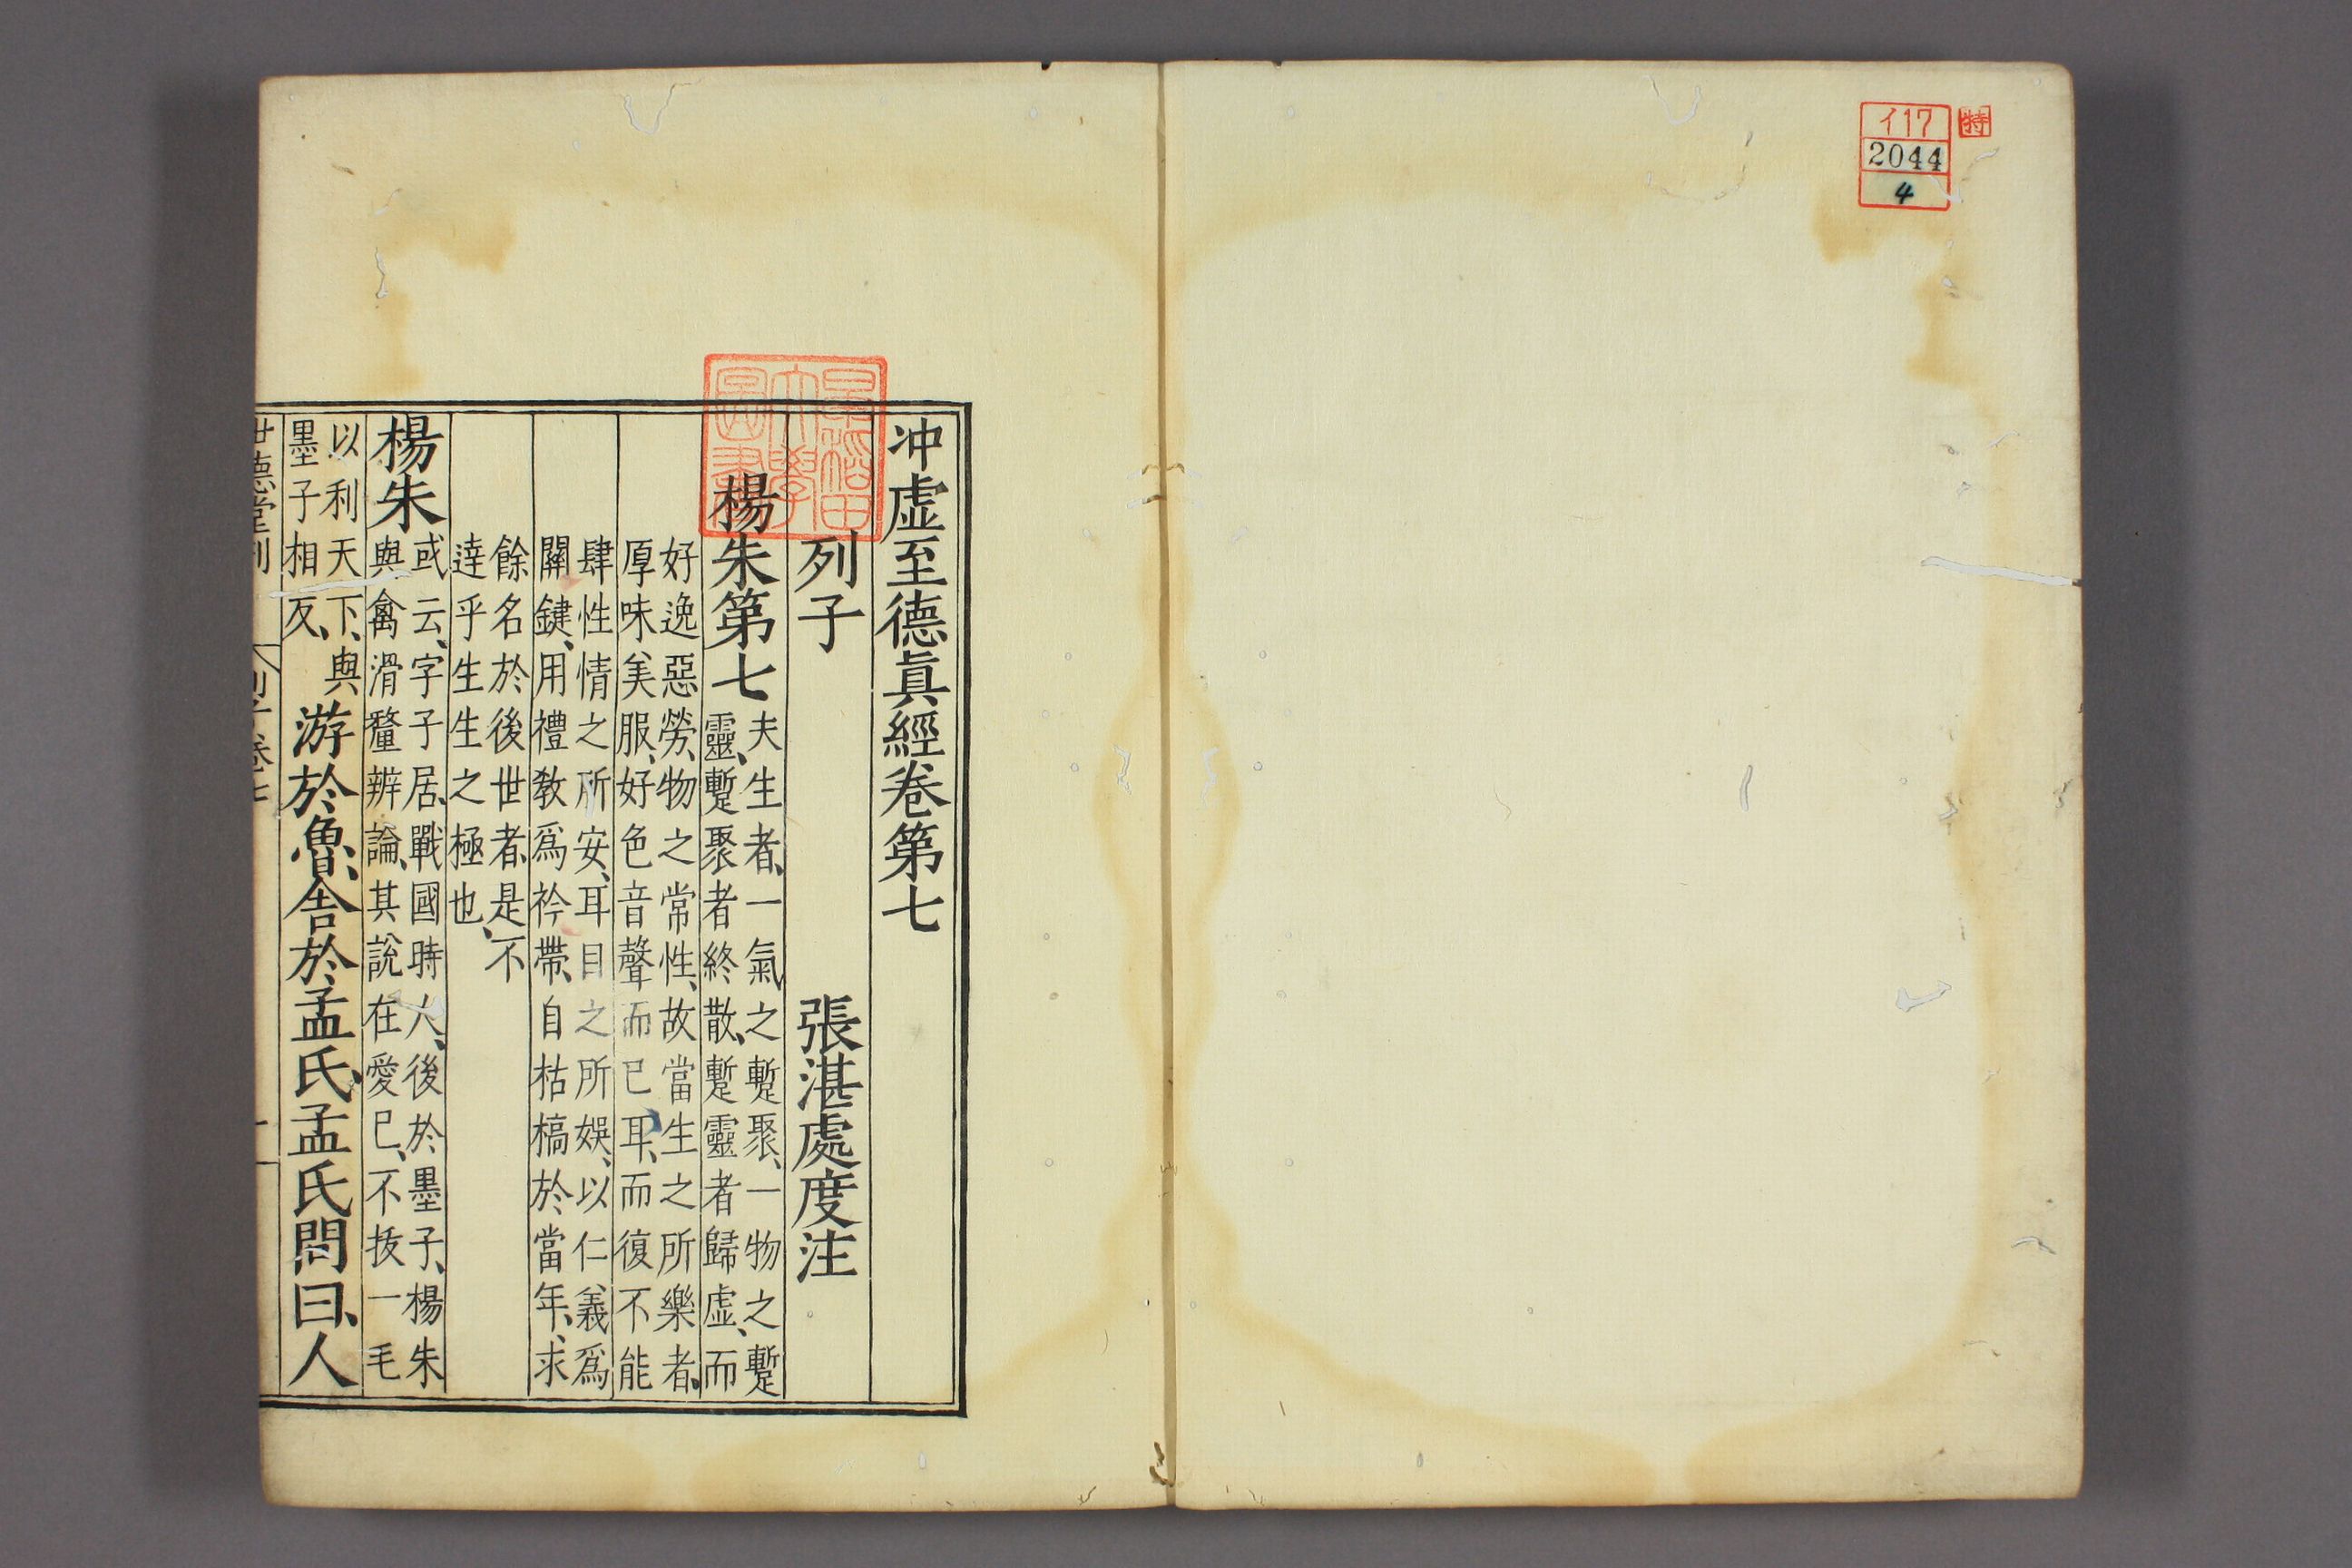 イ17
特
2044
4
早稲田
大學
圖書
冲虚至德眞經卷第七
列子 張湛處度注
楊朱第七
夫生者、一氣之蹔聚、一物之蹔
靈、蹔聚者終散、蹔靈者歸虚、而
好逸惡勞、物之常性、故當生之所樂者、
厚味美服、好色音聲而已耳、而復不能
肆性情之所安、耳目之所娛、以仁義爲
關鍵、用禮教爲衿帶、自枯槁於當年、求
餘名於後世者、是不
逹乎生生之極也、
楊朱
或云、字子居、戰國時人、後於墨子、楊朱
與禽滑釐辨論、其說在愛已、不拔一毛
以利天下、與
墨子相反、
游於魯、舍於孟氏、孟氏問曰、人
世德堂刊
列子卷七
一